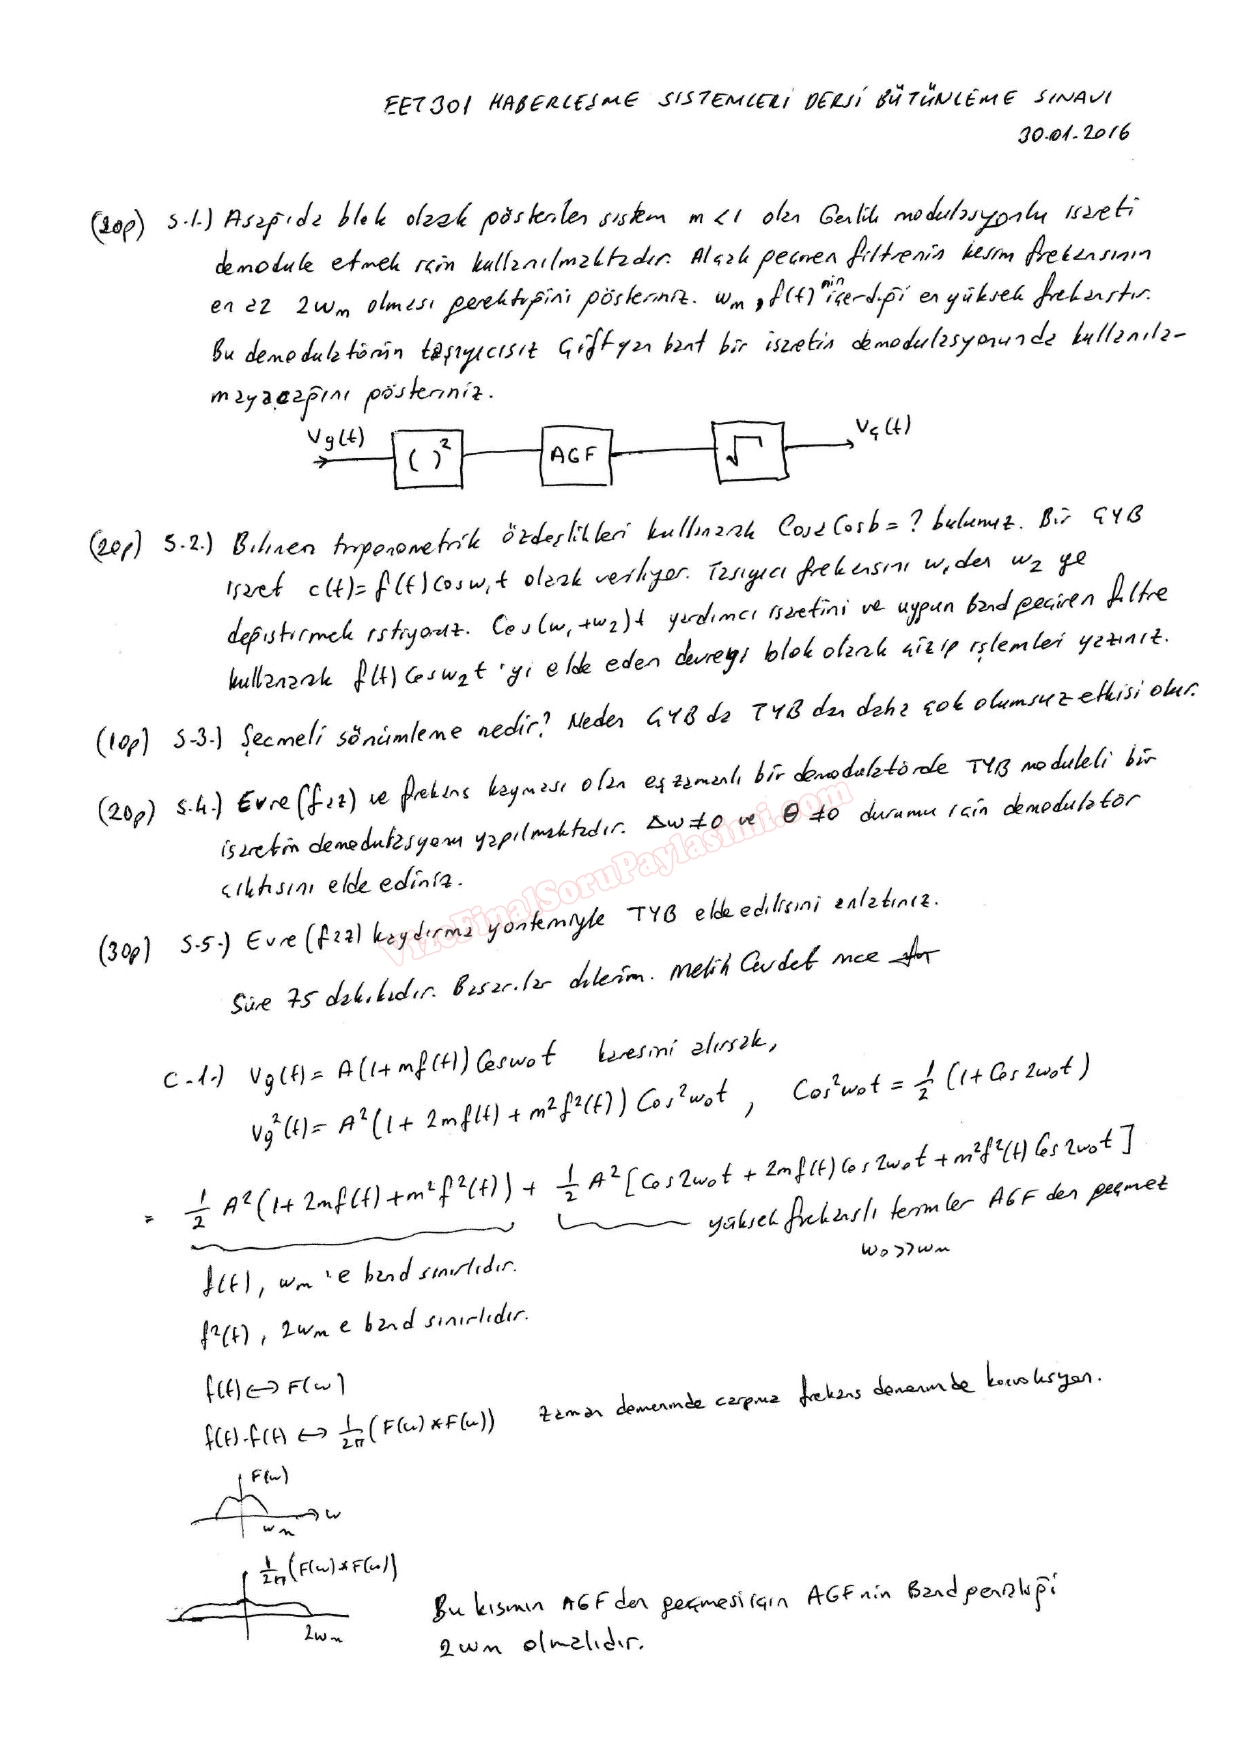 EET301 HABERLEŞME SİSTEMLERİ DERSİ BÜTÜNLEME SINAVI
30.01.2016
(20p) S.1.) Aşağıda blok olarak gösterilen sistem m<1 olan Genlik modülasyonlu işareti
demodule etmek için kullanılmaktadır. Alçak geçiren filtrenin kesim frekansının
en az 2wm olması gerektiğini gösteriniz. wm, f(t) nin içerdiği en yüksek frekanstır.
Bu demodulatörün taşıyıcısız Çiftyan bant bir işaretin demodulasyonunda kullanıla-
mayacağını gösteriniz.
Vg(t) ( )² AGF √ Vç(t)
(20p) S.2.) Bilinen trigonometrik özdeşlikleri kullanarak CosaCosb=? bulunuz. Bir ÇYB
işaret c(t)=f(t)Cosw₁t olarak veriliyor. Taşıyıcı frekansını w₁den w₂ ye
değiştirmek istiyoruz. Cos(w₁+w₂)t yardımcı işaretini ve uygun band geçiren filtre
kullanarak f(t)Cosw₂t 'yi elde eden devreyi blok olarak çizip işlemleri yazınız.
(10p) S.3.) Seçmeli sönümleme nedir? Neden ÇYB de TYB dan daha çok olumsuz etkisi olur.
(20p) S.4.) Evre(faz) ve frekans kayması olan eşzamanlı bir demodulatörde TYB moduleli bir
işaretin demodulasyonu yapılmaktadır. Δw≠0 ve θ≠0 durumu için demodulatör
çıktısını elde ediniz.
(30p) S.5.) Evre(faz) kaydırma yöntemiyle TYB elde edilişini anlatınız.
Süre 75 dakikadır. Başarılar dilerim. Melih Cevdet İnce
VizeFinalSoruPaylasimi.com
C.1.) Vg(t)= A(1+mf(t))Cosw₀t karesini alırsak,
Vg²(t)= A²(1+2mf(t)+m²f²(t))Cos²w₀t, Cos²w₀t = 1/2 (1+Cos2w₀t)
= 1/2 A²(1+2mf(t)+m²f²(t)) + 1/2 A²[Cos2w₀t+2mf(t)Cos2w₀t+m²f²(t)Cos2w₀t]
yüksek frekanslı terimler AGF den geçmez
w₀>>wm
f(t), wm 'e band sınırlıdır.
f²(t), 2wm e band sınırlıdır.
f(t)↔F(w)
f(t).f(t)↔ 1/2π (F(w)*F(w)) zaman domeninde çarpma frekans domeninde konvolüsyon.
F(w)
w
wm
1/2π (F(w)*F(w))
2wm
Bu kısmın AGF den geçmesi için AGF nin Band genişliği
2wm olmalıdır.